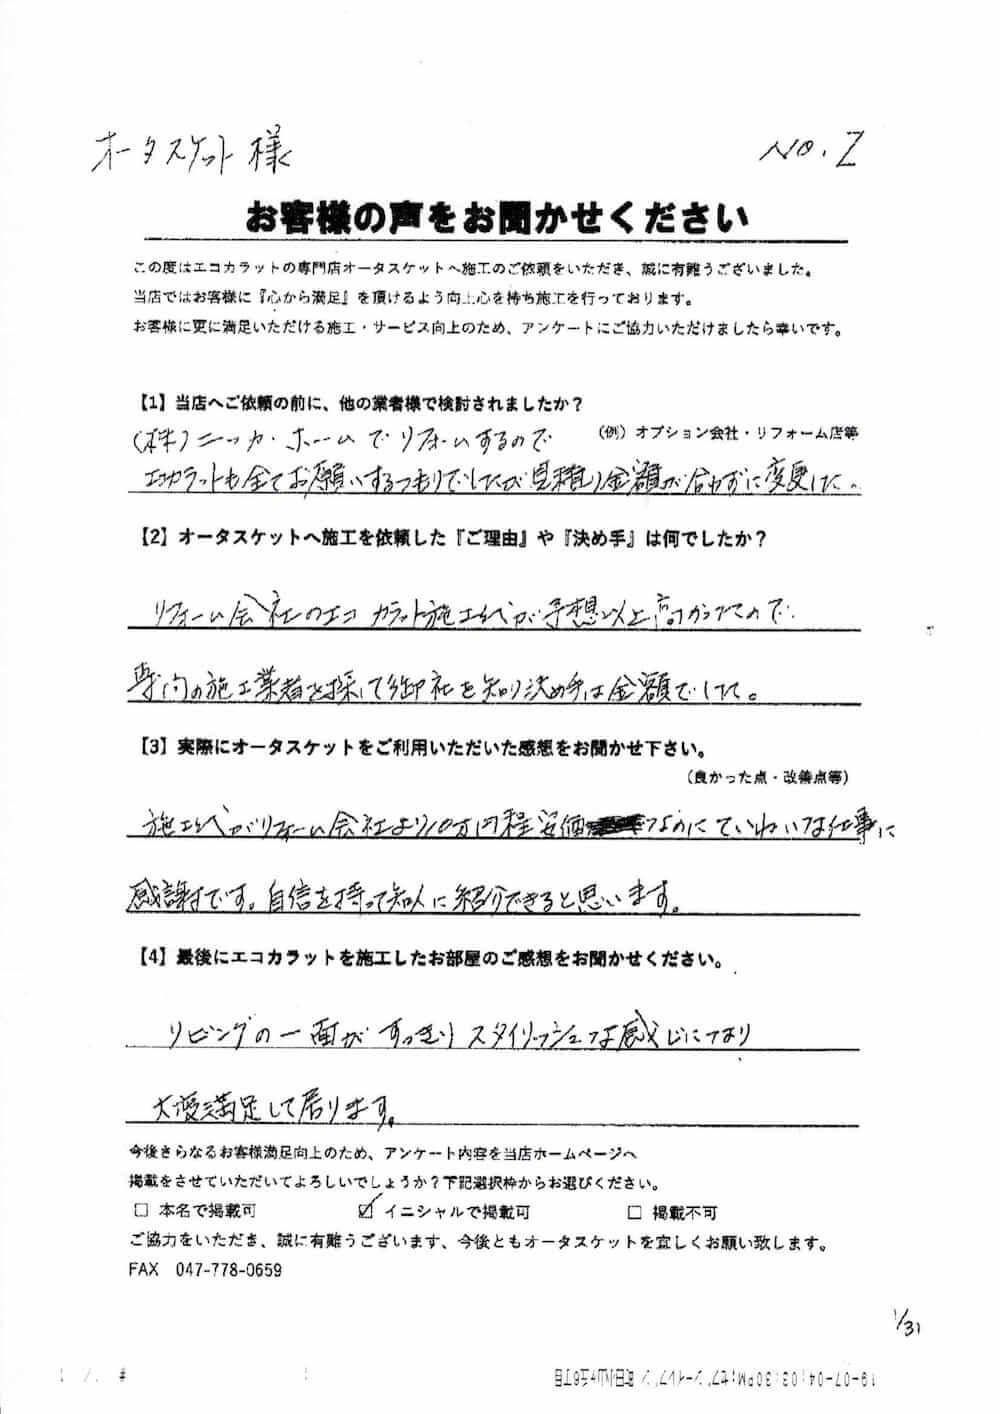 オータスケット様
No.2
お客様の声をお聞かせください
この度はエコカラットの専門店オータスケットへ施工のご依頼をいただき、誠に有難うございました。
当店ではお客様に『心から満足』を頂けるよう向上心を持ち施工を行っております。
お客様に更に満足いただける施工・サービス向上のため、アンケートにご協力いただけましたら幸いです。
【1】当店へご依頼の前に、他の業者様で検討されましたか？
（例）オプション会社・リフォーム店等
(株)ニッカ・ホームでリフォームするので
エコカラットも全てお願いするつもりでしたが見積り金額が合わずに変更した。
【2】オータスケットへ施工を依頼した『ご理由』や『決め手』は何でしたか？
リフォーム会社のエコカラット施工代が予想以上高かったので
専門の施工業者を探して御社を知り決め手は金額でした。
【3】実際にオータスケットをご利用いただいた感想をお聞かせ下さい。
（良かった点・改善点等）
施工代がリフォーム会社より10万円程安価なのにていねいな仕事に
感謝です。自信を持って知人に紹介できると思います。
【4】最後にエコカラットを施工したお部屋のご感想をお聞かせください。
リビングの一面がすっきりスタイリッシュな感じになり
大変満足して居ります。
今後さらなるお客様満足向上のため、アンケート内容を当店ホームページへ
掲載をさせていただいてよろしいでしょうか？下記選択枠からお選びください。
□ 本名で掲載可 ☑ イニシャルで掲載可 □ 掲載不可
ご協力をいただき、誠に有難うございます、今後ともオータスケットを宜しくお願い致します。
FAX 047-778-0659
1/31
19-07-04;03:30PM;セブン-イレブン 町田小山ヶ丘6丁目
# 1/ 1